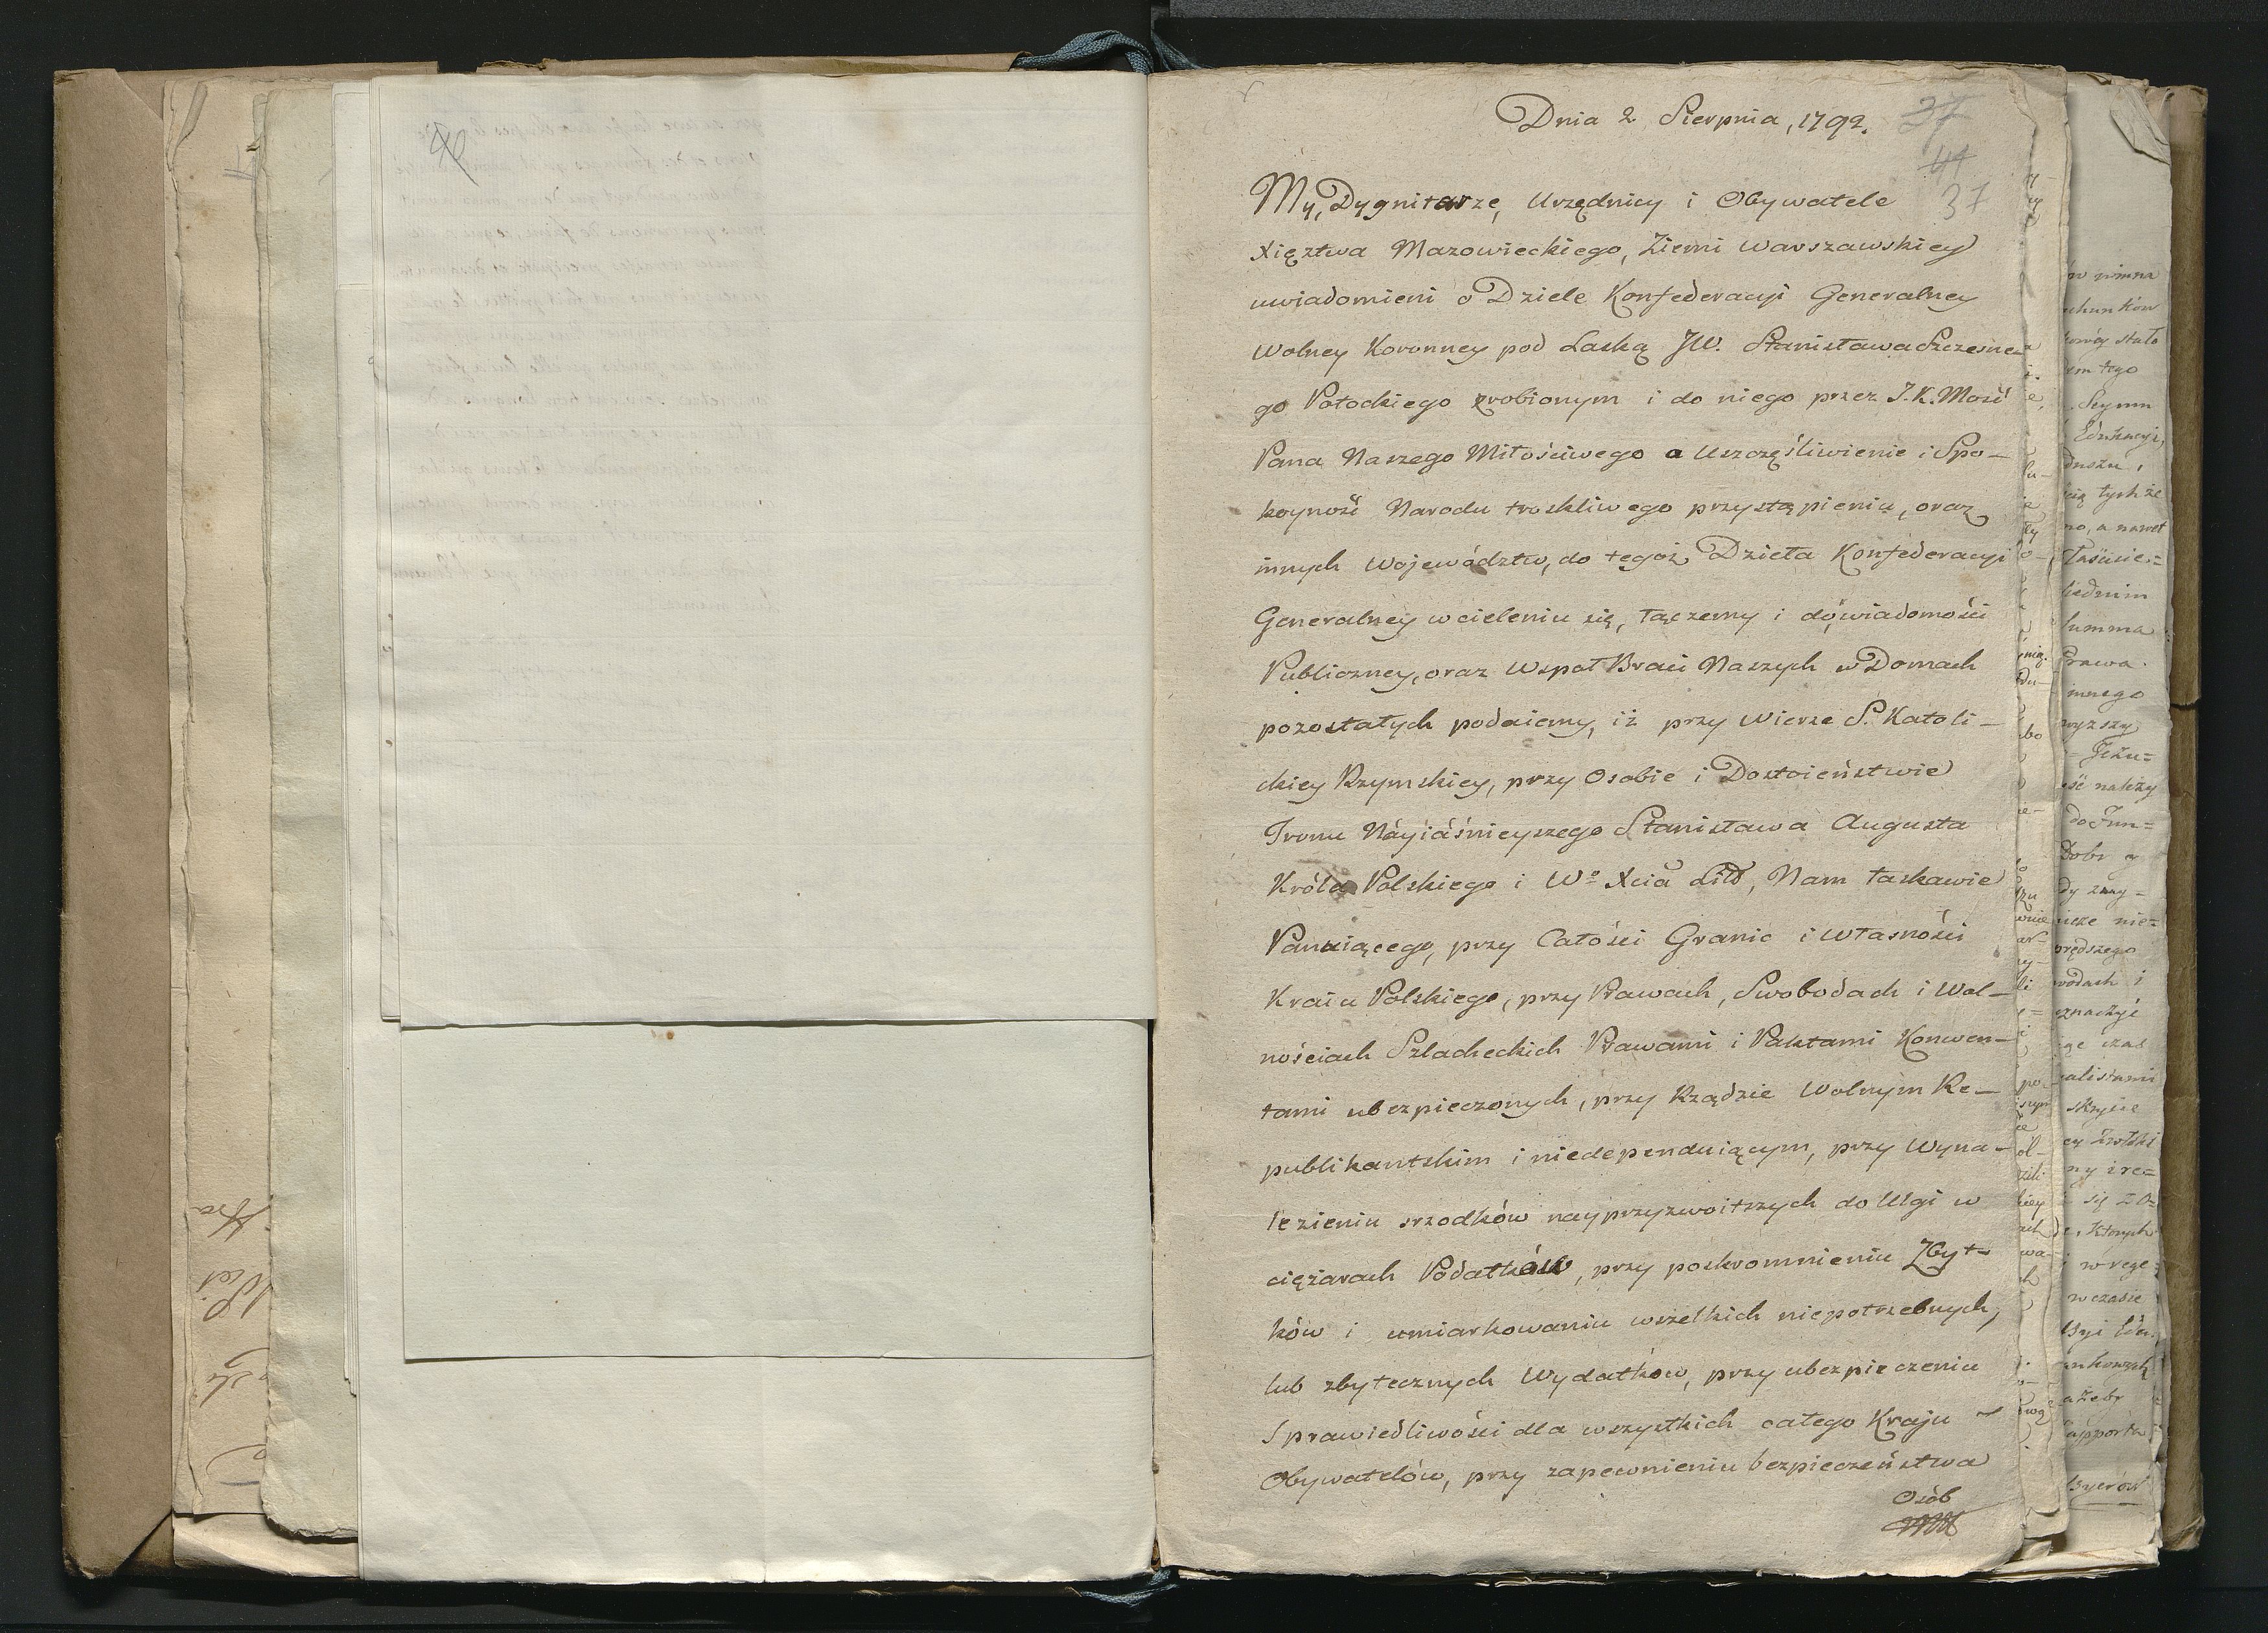 Dnia 2 Sierpnia, 1792.
37
41
37
My, Dygnitarze, Urzędnicy i Obywatele
Xięztwa Mazowieckiego, Ziemi Warszawskiey
uwiadomieni o Dziele Konfederacyi Generalney
Wolney Koronney pod Laską JW. Stanisława Szczesne-
go Potockiego zrobionym i do niego przez J. K. Mość
Pana Naszego Miłościwego o Uszczęśliwienie i Spo-
koyność Narodu troskliwego przystąpieniu, oraz
innych Województw, do tegoż Dzieła Konfederacyi
Generalney wcieleniu się, łączemy i do wiadomości
Publiczney, oraz Wspoł Braci Naszych w Domach
pozostałych podaiemy, iż przy Wierze S. Katoli-
ckiey Rzymskiey, przy Osobie i Dostoieństwie
Tronu Náyiáśnieyszego Stanisława Augusta
Króla Polskiego i Wo Xcia Litt, Nam łaskawie
Panuiącego, przy Całości Granic i Własności
Kraiu Polskiego, przy Prawach, Swobodach i Wol-
nościach Szlacheckich Prawami i Paktami Konwen-
tami ubezpieczonych, przy Rządzie Wolnym Re-
publikantskim i niedependuiącym, przy Wyna-
lezieniu srzodków nayprzyzwoitszych do Ulgi w
ciężarach Podatków, przy poskromnieniu Zbyt-
ków i umiarkowaniu wszelkich niepotrzebnych,
lub zbytecznych Wydatków, przy ubezpieczeniu
Sprawiedliwości dla wszystkich całego Kraju
Obywatelów, przy zapewnieniu bezpieczeństwa
Osób